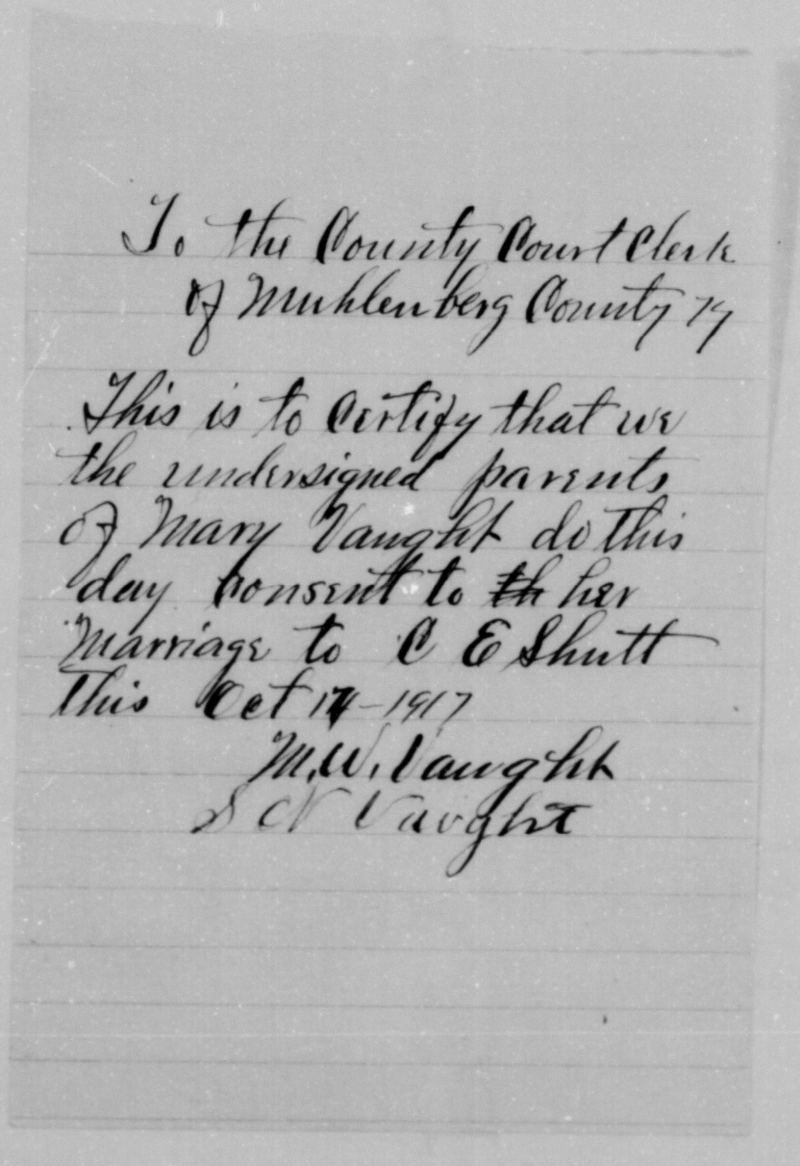 To the County Court Clerk
of Muhlenberg County Ky
This is to Certify that we
the undersigned parents
of Mary Vaught do this
day Consent to th her
Marriage to C E Shutt
This Oct - 1917
M. W. Vaught
S N Vaught